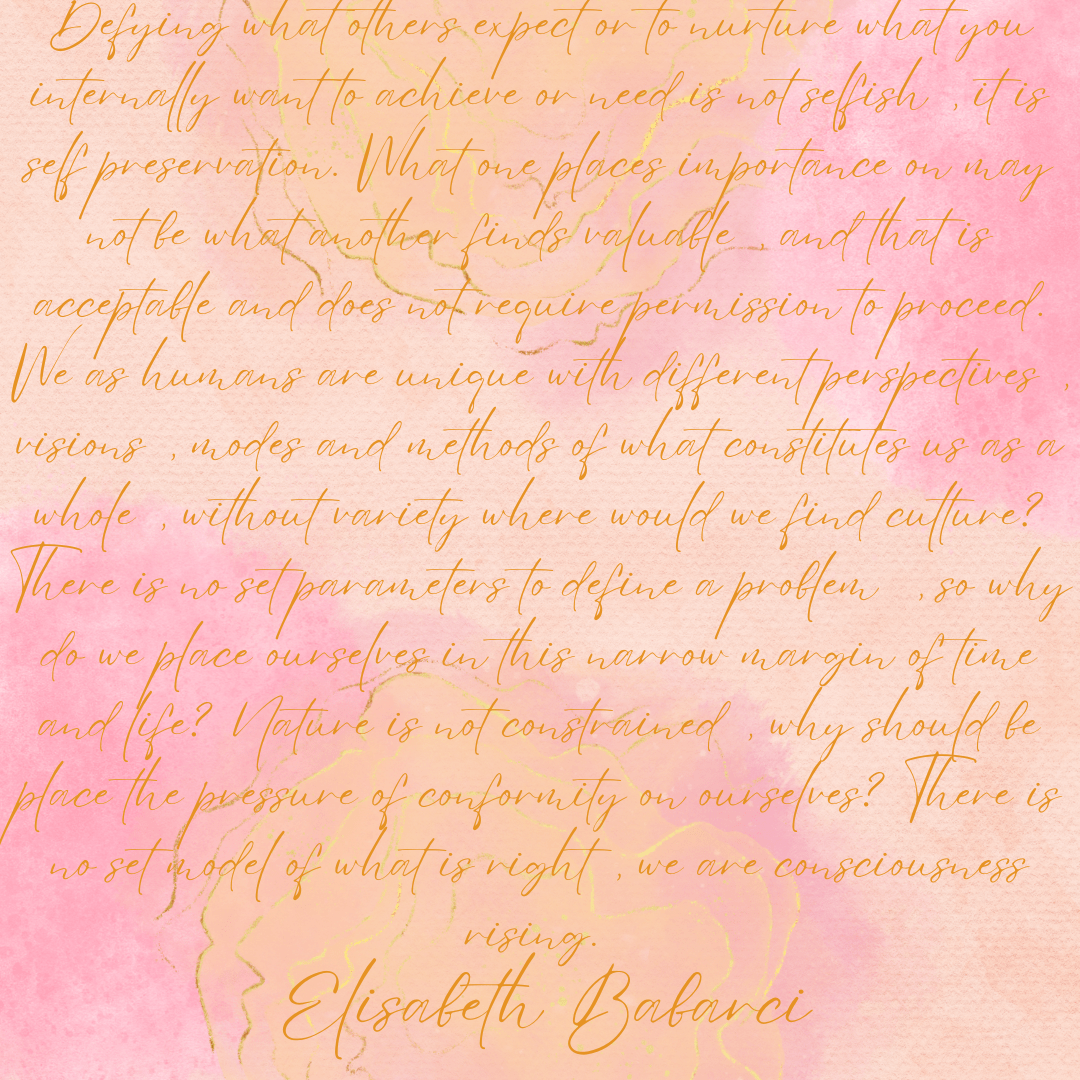 Defying what others expect or to nurture what you
internally want to achieve or need is not selfish , it is
self preservation. What one places importance on may
not be what another finds valuable , and that is
acceptable and does not require permission to proceed.
We as humans are unique with different perspectives ,
visions , modes and methods of what constitutes us as a
whole , without variety where would we find culture?
There is no set parameters to define a problem , so why
do we place ourselves in this narrow margin of time
and life? Nature is not constrained , why should be
place the pressure of conformity on ourselves? There is
no set model of what is right , we are consciousness
rising.
Elisabeth Babarci